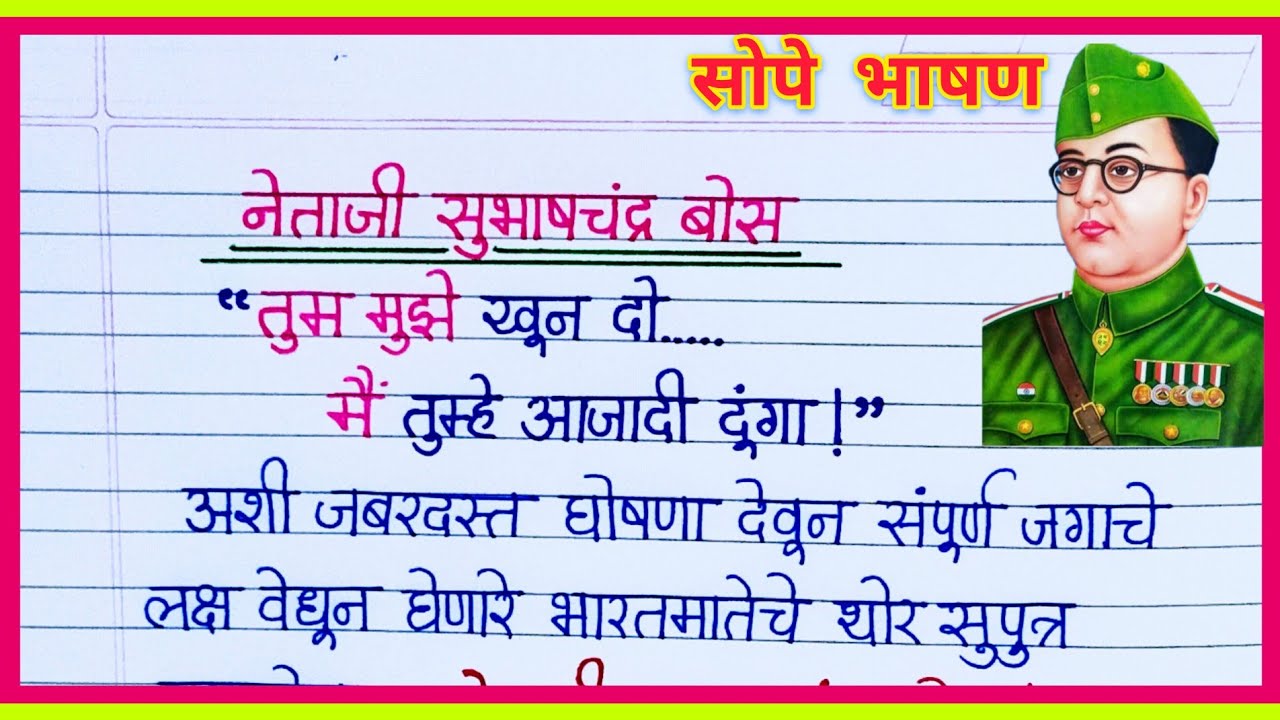 सोपे भाषण
नेताजी सुभाषचंद्र बोस
“तुम मुझे खून दो.....
मैं तुम्हे आजादी दूंगा!”
अशी जबरदस्त घोषणा देवून संपूर्ण जगाचे
लक्ष वेधून घेणारे भारतमातेचे थोर सुपुत्र